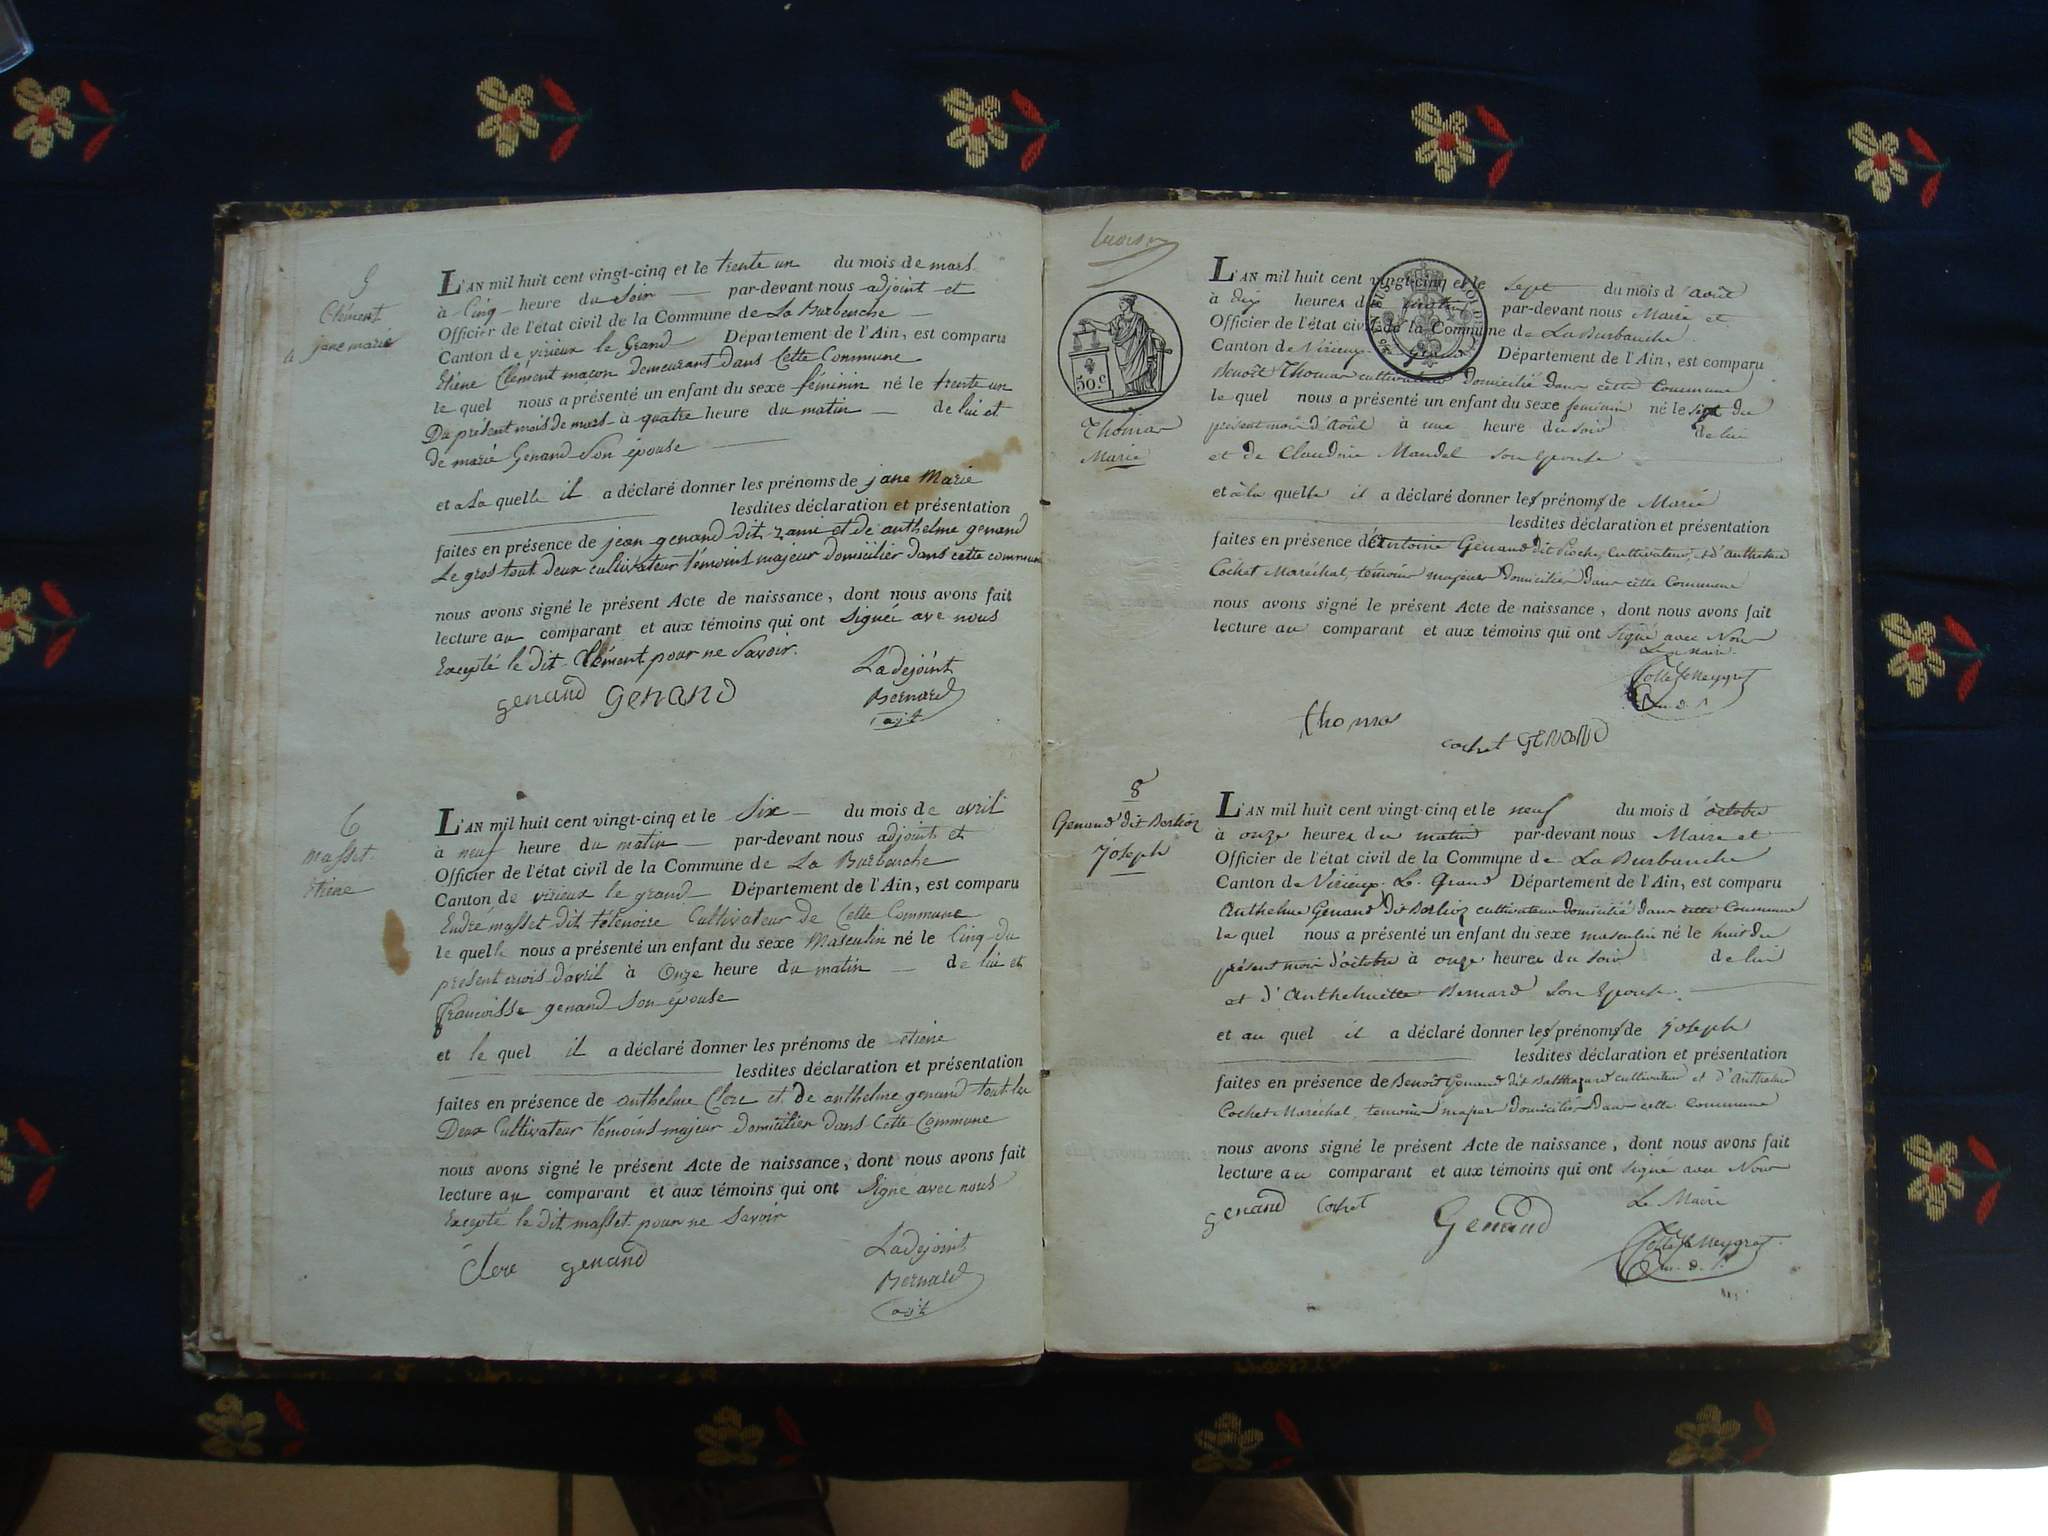 5
Clément
jane marie
L'AN mil huit cent vingt-cinq et le trente un du mois de mars
à Cinq heure du Soir par-devant nous adjoint et
Officier de l'état civil de la Commune de La Burbanche
Canton de virieux le Grand Département de l'Ain, est comparu
Etiéne Clément macon demeurant dans Cette Commune
le quel nous a présenté un enfant du sexe féminin né le trente un
Du présent mois de mars à quatre heure du matin de lui et
de marie Genand Son épouse
et a la quelle il a déclaré donner les prénoms de jane Marie
lesdites déclaration et présentation
faites en présence de jean genand dit zami et de anthelme genand
Le gros tout deux cultivateur témoins majeur domicilier dans cette commune
nous avons signé le présent Acte de naissance, dont nous avons fait
lecture au comparant et aux témoins qui ont Signée ave nous
Excepté le dit Clément pour ne Savoir.
Ladejoint
genand Genand
Bernard
ajt
6
masset
etiene
L'AN mil huit cent vingt-cinq et le Six du mois de avril
à neuf heure du matin par-devant nous adjoint et
Officier de l'état civil de la Commune de La Burbanche
Canton de virieux le grand Département de l'Ain, est comparu
Endré masset dit tétenoire Cultivateur de Cette Commune
le quelle nous a présenté un enfant du sexe Masculin né le Cinq du
present mois davril à Onze heure du matin de lui et
francoisse genand Son épouse
et le quel il a déclaré donner les prénoms de etiene
lesdites déclaration et présentation
faites en présence de anthelme Clere et de anthelme genand tout les
Deux Cultivateur témoins majeur domicilier dans Cette Commune
nous avons signé le présent Acte de naissance, dont nous avons fait
lecture au comparant et aux témoins qui ont Signe avec nous
Excepté le dit masset pour ne Savoir
Ladejoint
Clere genand
Bernard
ajt
50.c
Thomas
Marie
L'AN mil huit cent vingt-cinq et le Sept du mois d'août
à dix heures du par-devant nous Maire et
Officier de l'état civil de la Commune de La Burbanche
Canton de Virieux Grand Département de l'Ain, est comparu
Benoît Thomas cultivateur domicilié dans cette Commune
le quel nous a présenté un enfant du sexe feminin né le sept du
présent mois d'août à une heure du soir de lui
et de Claudine Mandel son Epouse
et à la quelle il a déclaré donner les prénoms de Marie
lesdites déclaration et présentation
faites en présence d'Antoine Genand dit Pioche, cultivateur, et d'anthelme
Cochet Maréchal, témoins majeurs domiciliés dans cette Commune
nous avons signé le présent Acte de naissance, dont nous avons fait
lecture au comparant et aux témoins qui ont signé avec Nous
Le maire
thomas
cochet GENAND
8
Genand dit Berlioz
Joseph
L'AN mil huit cent vingt-cinq et le neuf du mois d'octobre
à onze heures du matin par-devant nous Maire et
Officier de l'état civil de la Commune de La Burbanche
Canton de Virieux Le Grand Département de l'Ain, est comparu
Anthelme Genand dit Berlioz cultivateur domicilié dans cette Commune
le quel nous a présenté un enfant du sexe masculin né le huit du
présent mois d'octobre à onze heures du soir de lui
et d'Anthelmette Bernard son Epouse
et au quel il a déclaré donner les prénoms de Joseph
lesdites déclaration et présentation
faites en présence de Benoît Genand dit Balthazard cultivateur et d'Anthelme
Cochet Maréchal, temoins majeurs domiciliés dans cette Commune
nous avons signé le présent Acte de naissance, dont nous avons fait
lecture au comparant et aux témoins qui ont signé avec Nous
genand Cochet Genand
Le Maire